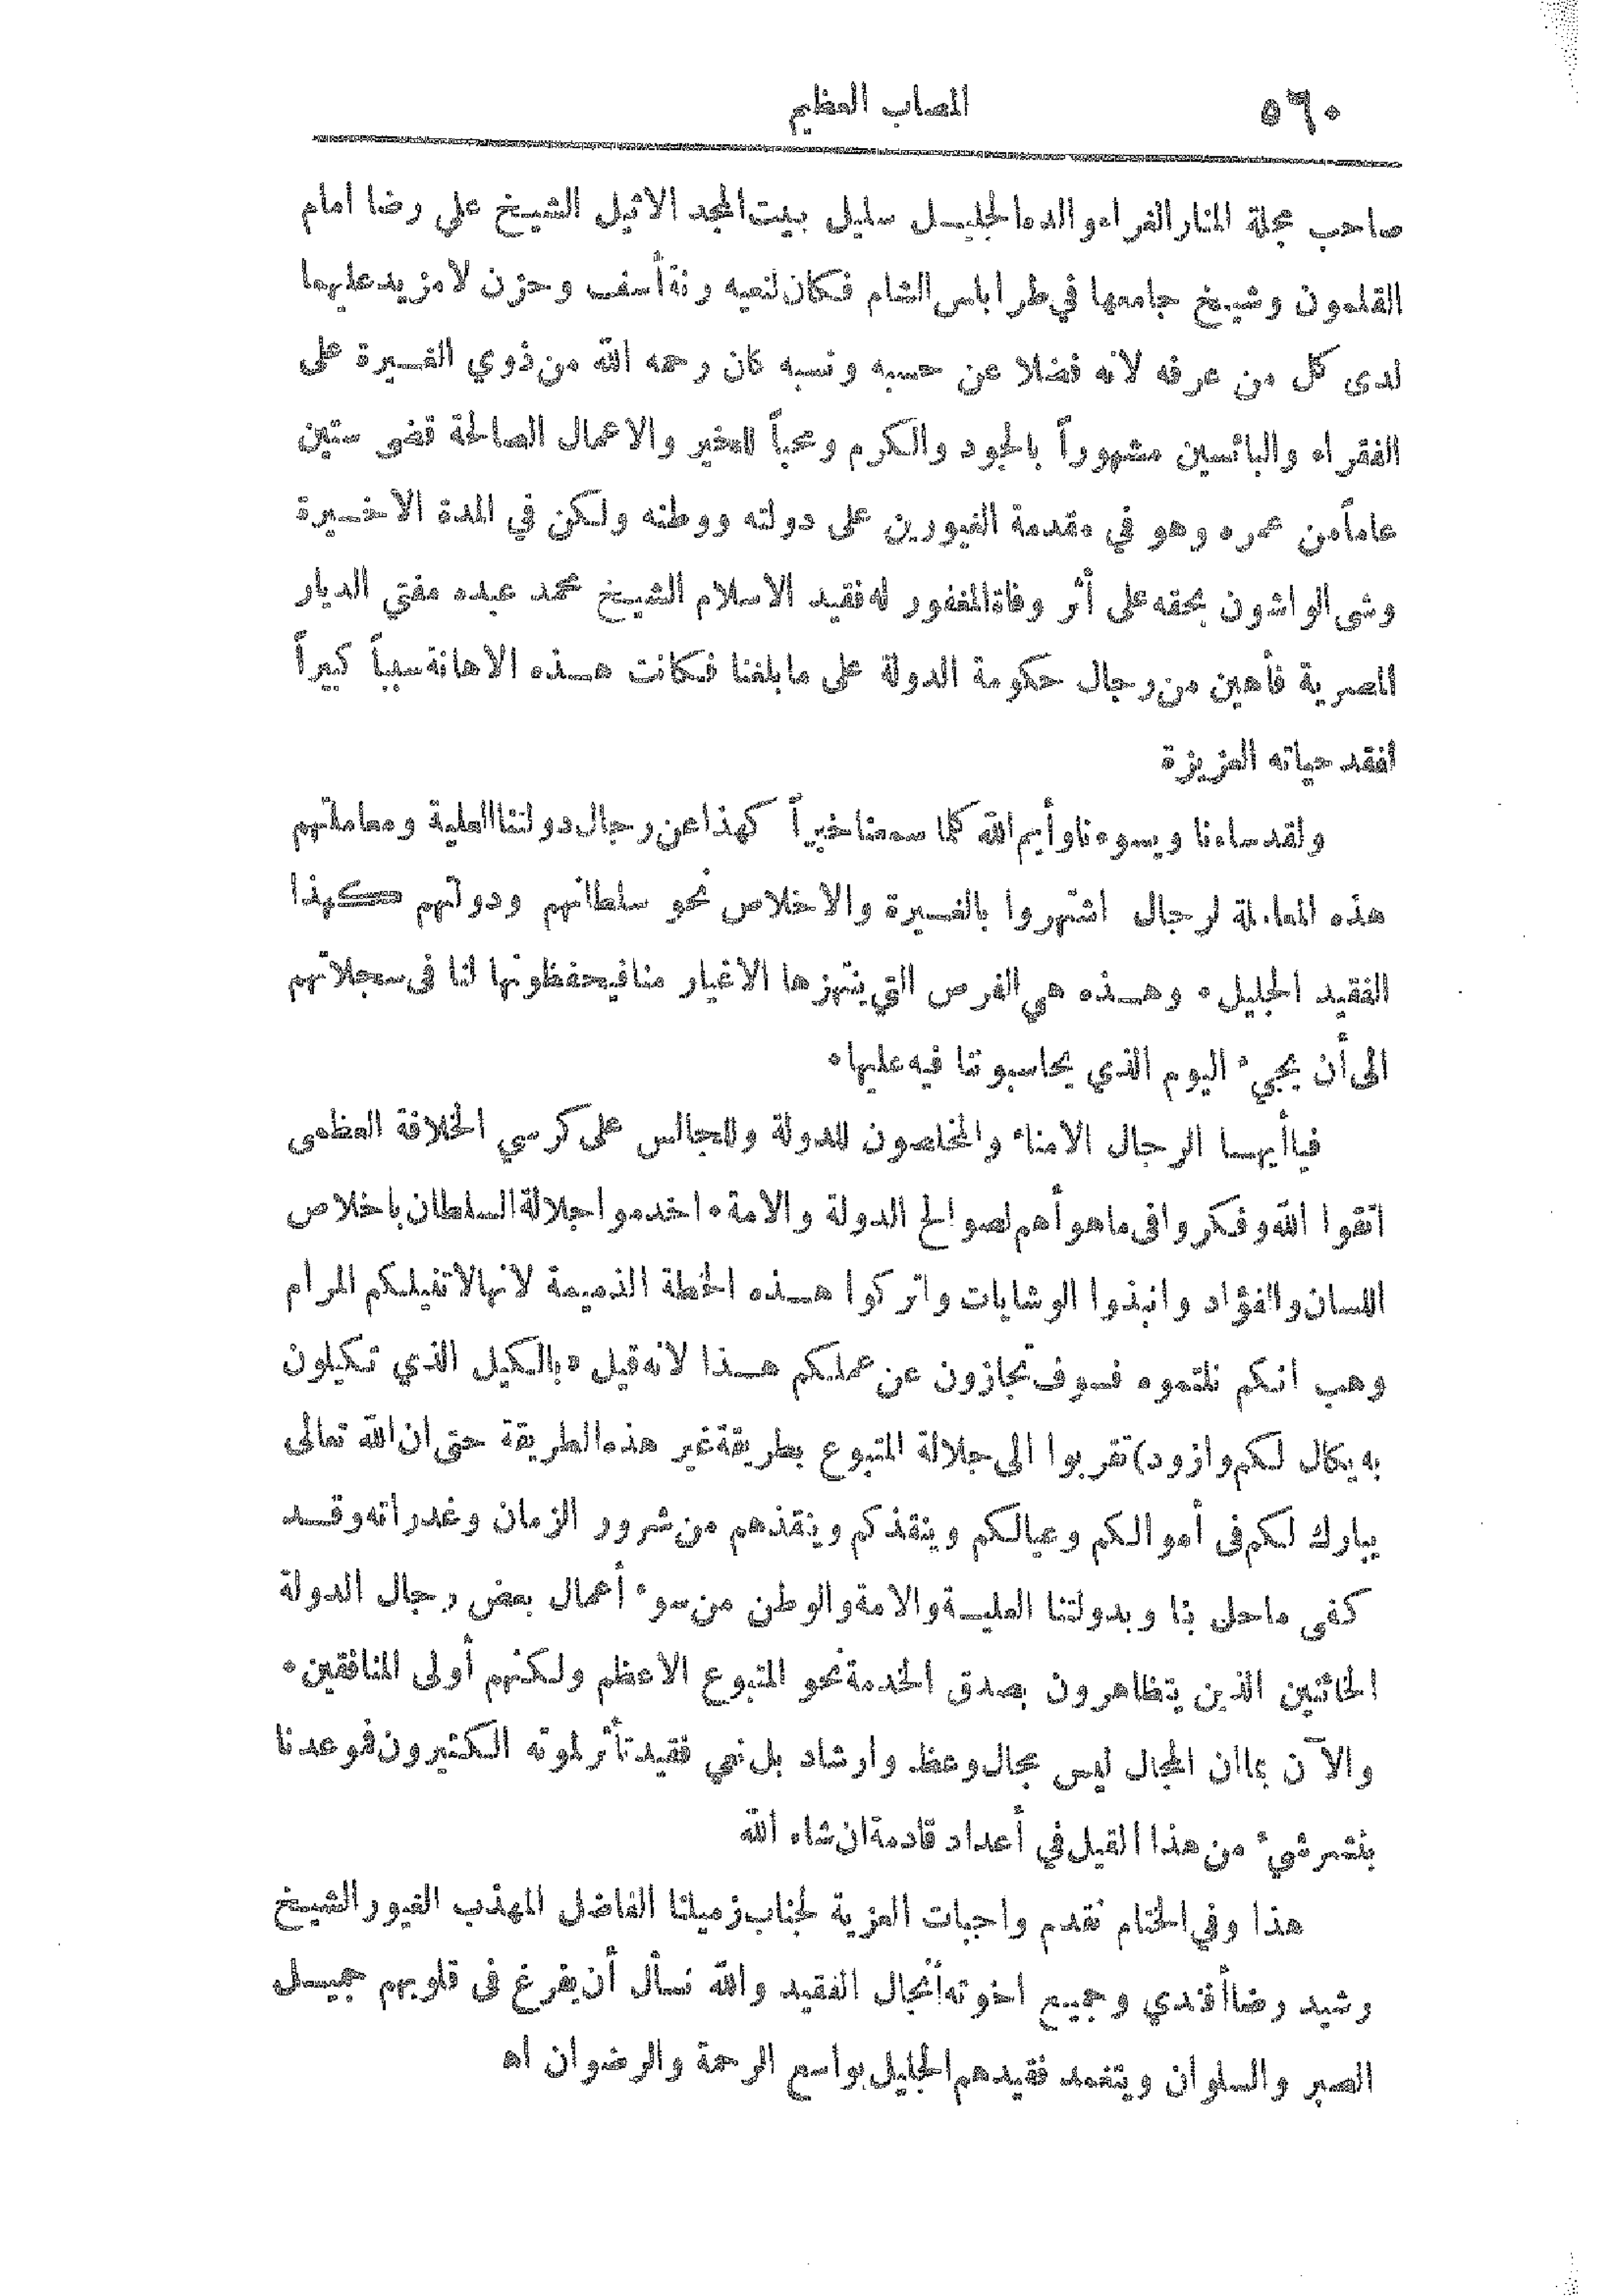 ٥٦٠
المصاب العظيم
صاحب مجلة المنار الغراء والده الجليل سليل بيت المجد الاثيل الشيخ علي رضا امام
القلمون وشيخ جامعها في طرابلس الشام فكان لنعيه رنة أسف وحزن لا مزيد عليهما
لدى كل من عرفه لانه فضلا عن حسبه ونسبه كان رحمه الله من ذوي الغيرة على
الفقراء والبائسين مشهوراً بالجود والكرم ومحباً للخير والاعمال الصالحة قضى ستين
عاماً من عمره وهو في مقدمة الغيورين على دولته ووطنه ولكن في المدة الاخيرة
وشى الواشون بحقه على أثر وفاة المغفور له فقيد الاسلام الشيخ محمد عبده مفتي الديار
المصرية فأهين من رجال حكومة الدولة على ما بلغنا فكانت هذه الاهانة سبباً كبيراً
لفقد حياته العزيزة
ولقد ساءنا ويسوءنا وأيم الله كلما سمعنا خبراً كهذا عن رجال دولتنا العلية ومعاملتهم
هذه المعاملة لرجال اشتهروا بالغيرة والاخلاص نحو سلطانهم ودولتهم كهذا
الفقيد الجليل ٠ وهذه هي الفرص التي ينتهزها الاغيار منا فيحفظونها لنا في سجلاتهم
الى أن يجيء اليوم الذي يحاسبوننا فيه عليها ٠
فيا أيها الرجال الامناء والمخلصون للدولة وللجالس على كرسي الخلافة العظمى
اتقوا الله وفكروا في ما هو أهم لصوالح الدولة والامة ٠ اخدموا جلالة السلطان باخلاص
اللسان والفؤاد وانبذوا الوشايات واتركوا هذه الخطة الذميمة لانها لا تنيلكم المرام
وهب انكم نلتموه فسوف تجازون عن عملكم هذا لانه قيل «بالكيل الذي تكيلون
به يكال لكم وازود) تقربوا الى جلالة المتبوع بطريقة غير هذه الطريقة حتى ان الله تعالى
يبارك لكم في أموالكم وعيالكم وينقذكم وينقذهم من شرور الزمان وغدراته وقد
كفى ما حل بنا وبدولتنا العلية والامة والوطن من سوء أعمال بعض رجال الدولة
الخائنين الذين يتظاهرون بصدق الخدمة نحو المتبوع الاعظم ولكنهم أولى المنافقين ٠
والآن بما ان المجال ليس مجال وعظ وارشاد بل نعي فقيد تأثر لموته الكثيرون فموعدنا
بنشر شيء من هذا القبيل في أعداد قادمة ان شاء الله
هذا وفي الختام نقدم واجبات التعزية لجناب زميلنا الفاضل المهذب الغيور الشيخ
رشيد رضا أفندي وجميع اخوته أنجال الفقيد والله نسأل أن يفرغ في قلوبهم جميل
الصبر والسلوان ويتغمد فقيدهم الجليل بواسع الرحمة والرضوان اه